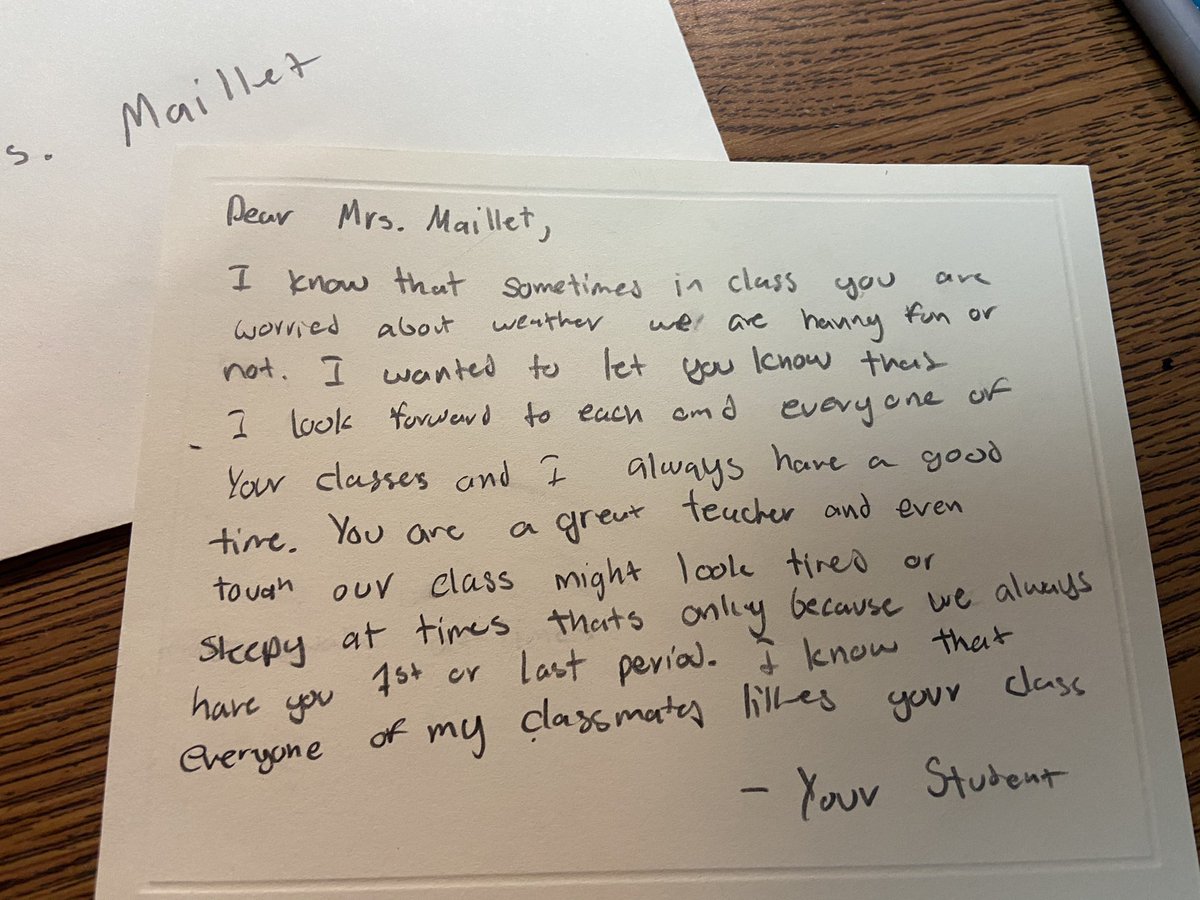 s. Maillet
Dear Mrs. Maillet,
I know that sometimes in class you are
worried about weather we are having fun or
not. I wanted to let you know that
I look forward to each and everyone of
Your classes and I always have a good
time. You are a great teacher and even
tough our class might look tired or
sleepy at times thats only because we always
have you 1st or last period. I know that
everyone of my classmates likes your class
- Your Student